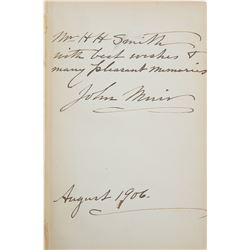 Mr H H Smith
with best wishes &
many pleasant memories
John Muir
August 1906.